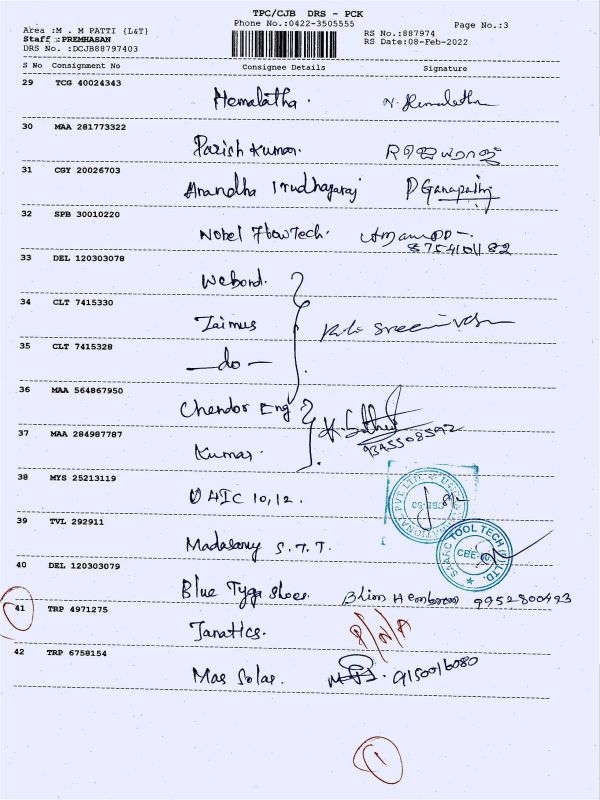 TPC/CJB DRS - PCK
Phone No.:0422-3505555
Page No.:3
Area :M . M PATTI {L&T}
Staff :PREMHASAN
DRS No. :DCJB88797403
RS No.:887974
RS Date:08-Feb-2022
S No Consignment No Consignee Details Signature
29 TCG 40024343
Hemalatha. N. Hemalatha
30 MAA 281773322
Parish Kumar.
31 CGY 20026703
Anandha Irudhayaraj P Ganapathy
32 SPB 30010220
Nobel Flowtech.
8754101182
33 DEL 120303078
Webord.
34 CLT 7415330
Taimus
35 CLT 7415328
— do —
36 MAA 564867950
Chendor Eng
9345508592
37 MAA 284987787
Kumar.
38 MYS 25213119
U HIC 10,12.
39 TVL 292911
Madasamy S.T.T.
SAARC TOOL TECH (P) LTD.
40 DEL 120303079
Blue Tyga Shoes. 9952800493
41 TRP 4971275
Janatics. P/N/A
42 TRP 6758154
Mas Solar. 9150016080
1